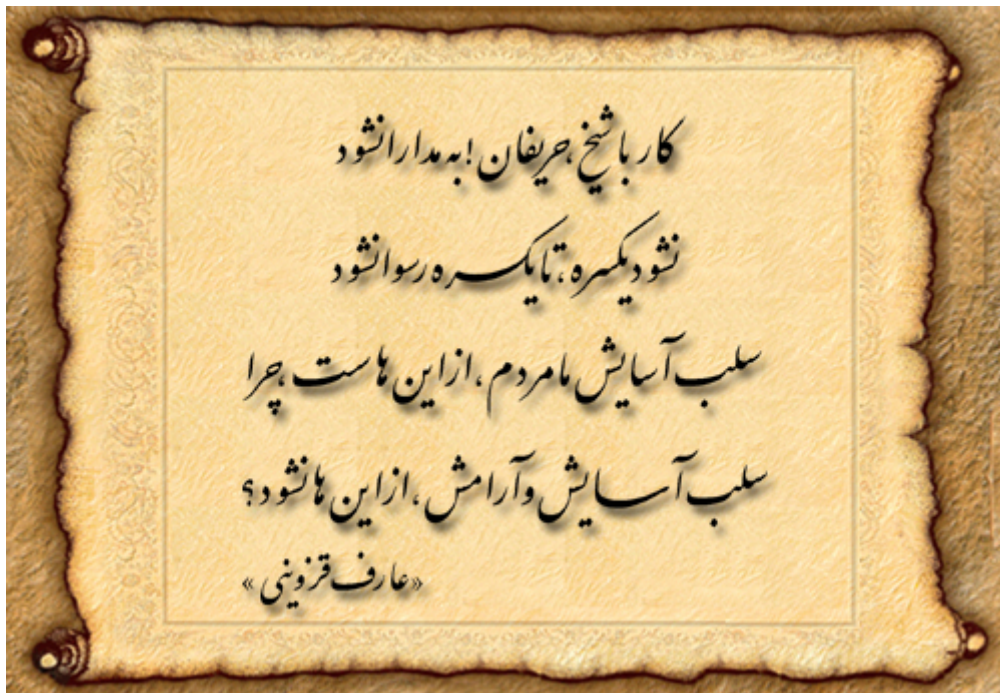 کار با شیخ، حریفان! به مدارا نشود
نشود یکسره، تا یکسره رسوا نشود
سلب آسایش ما مردم، از این هاست، چرا
سلب آسایش و آرامش، از این ها نشود؟
«عارف قزوینی»